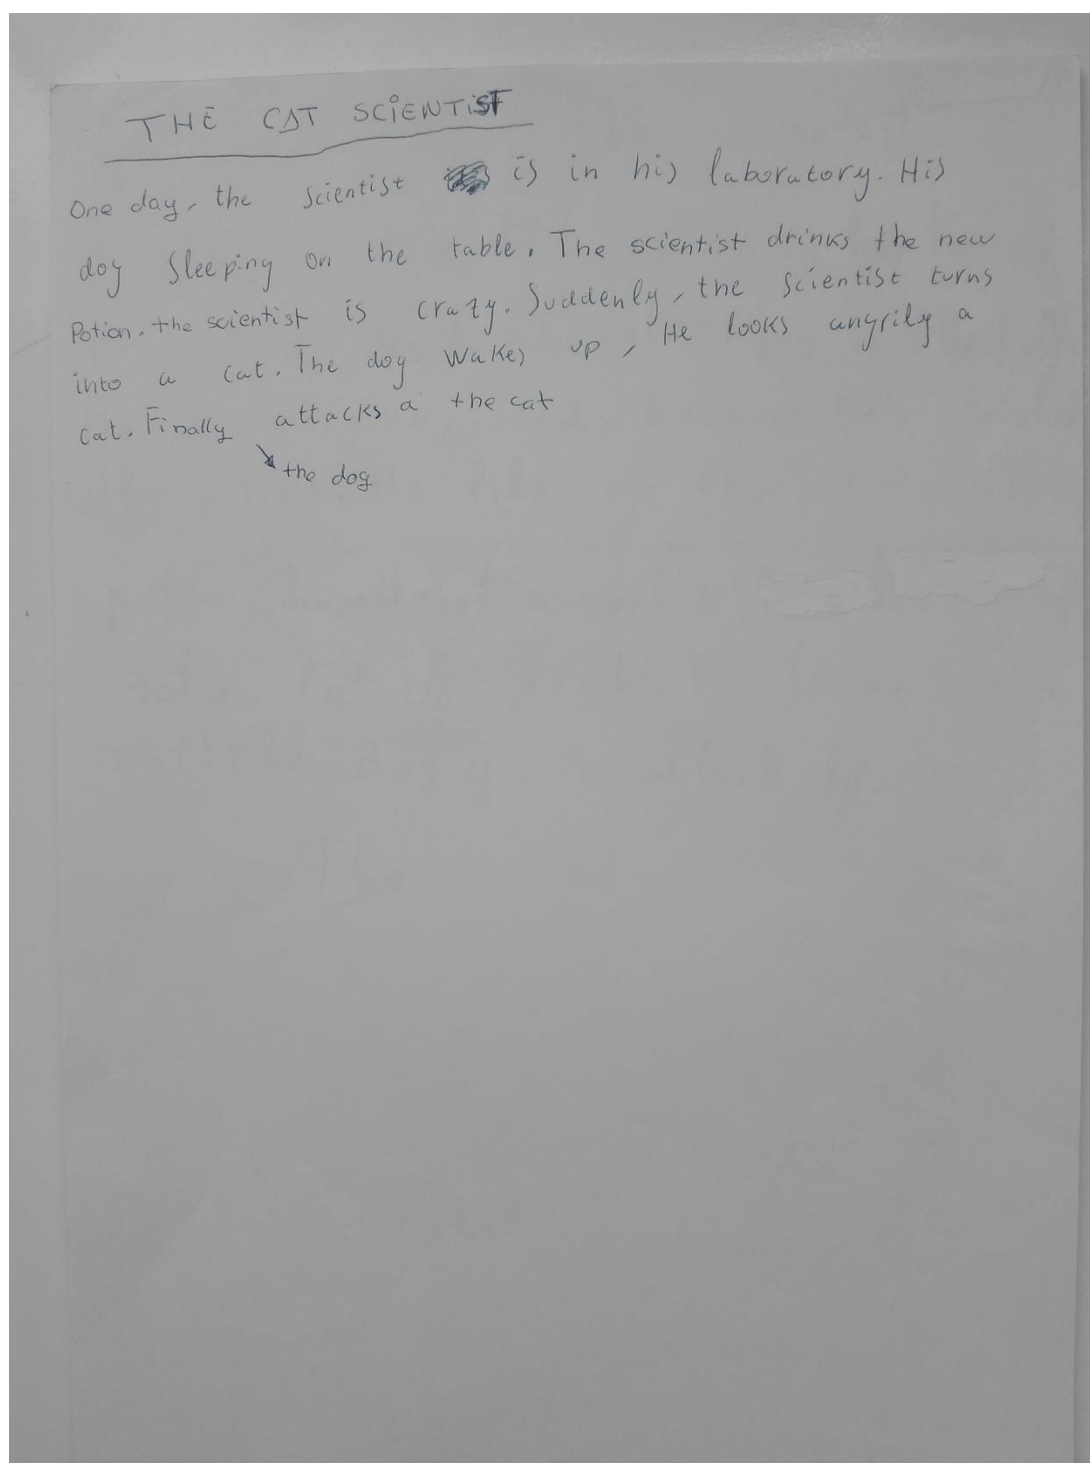 THE CAT SCIENTIST
One day, the scientist is in his laboratory. His
dog sleeping on the table. The scientist drinks the new
Potion. the scientist is crazy. Suddenly, the scientist turns
into a cat. The dog wakes up, He looks angrily a
cat. Finally attacks a the cat
the dog